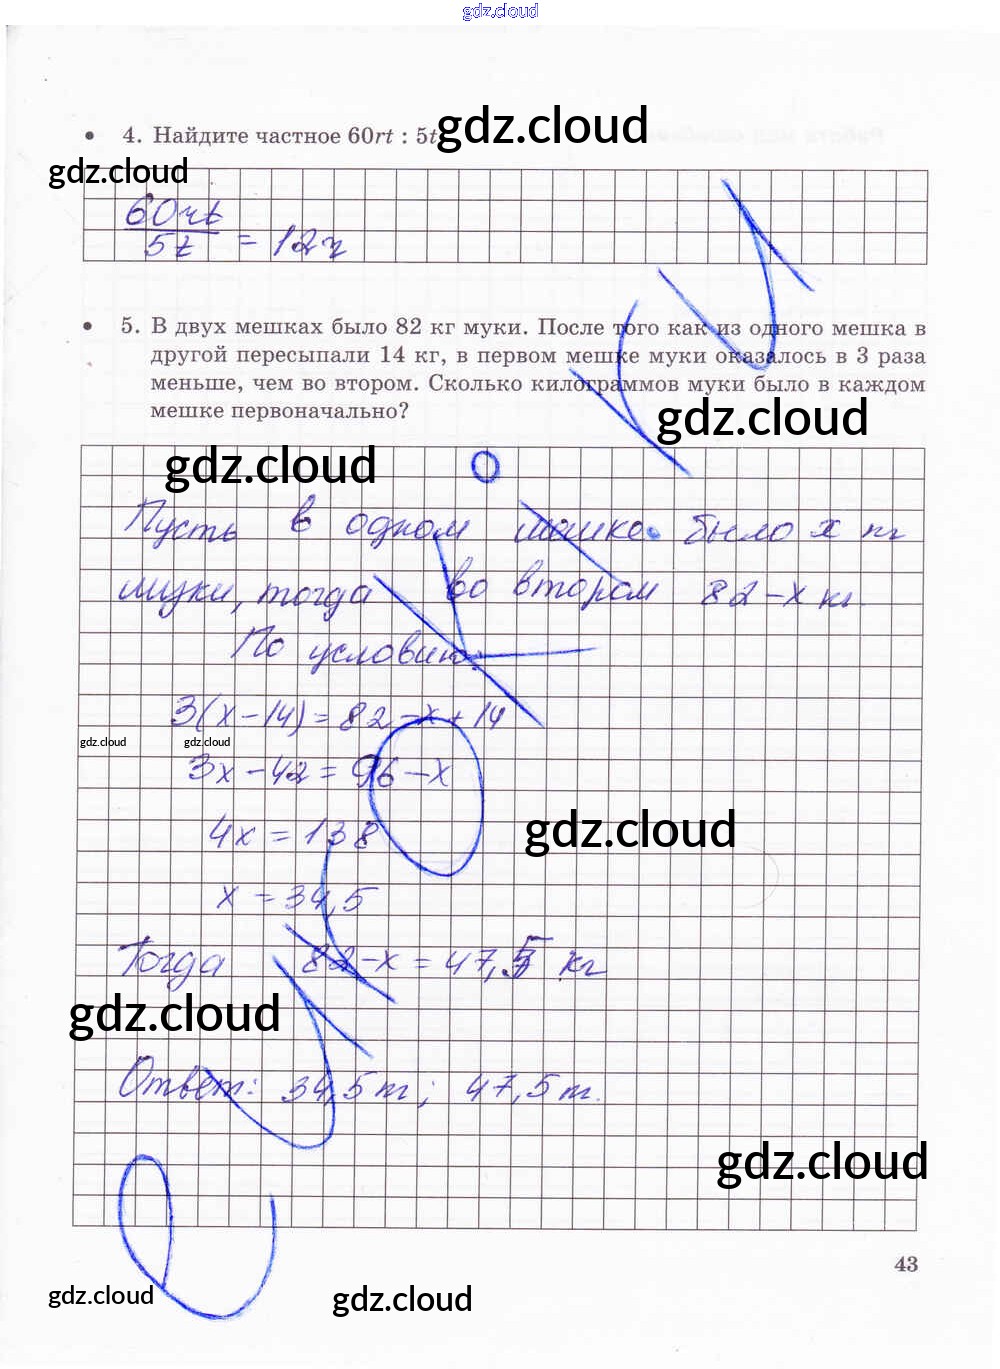 gdz.cloud
gdz.cloud
• 4. Найдите частное 60rt : 5t
gdz.cloud
60rt
5t = 12r
• 5. В двух мешках было 82 кг муки. После того как из одного мешка в
другой пересыпали 14 кг, в первом мешке муки оказалось в 3 раза
меньше, чем во втором. Сколько килограммов муки было в каждом
мешке первоначально?
gdz.cloud
gdz.cloud
Пусть в одном мешке было x кг
муки, тогда во втором 82-x кг.
По условию:
3(x-14)=82-x+14
gdz.cloud gdz.cloud
3x-42=96-x
4x=138
gdz.cloud
x=34,5
Тогда 82-x=47,5 кг
gdz.cloud
Ответ: 34,5 кг; 47,5 кг.
gdz.cloud
43
gdz.cloud
gdz.cloud